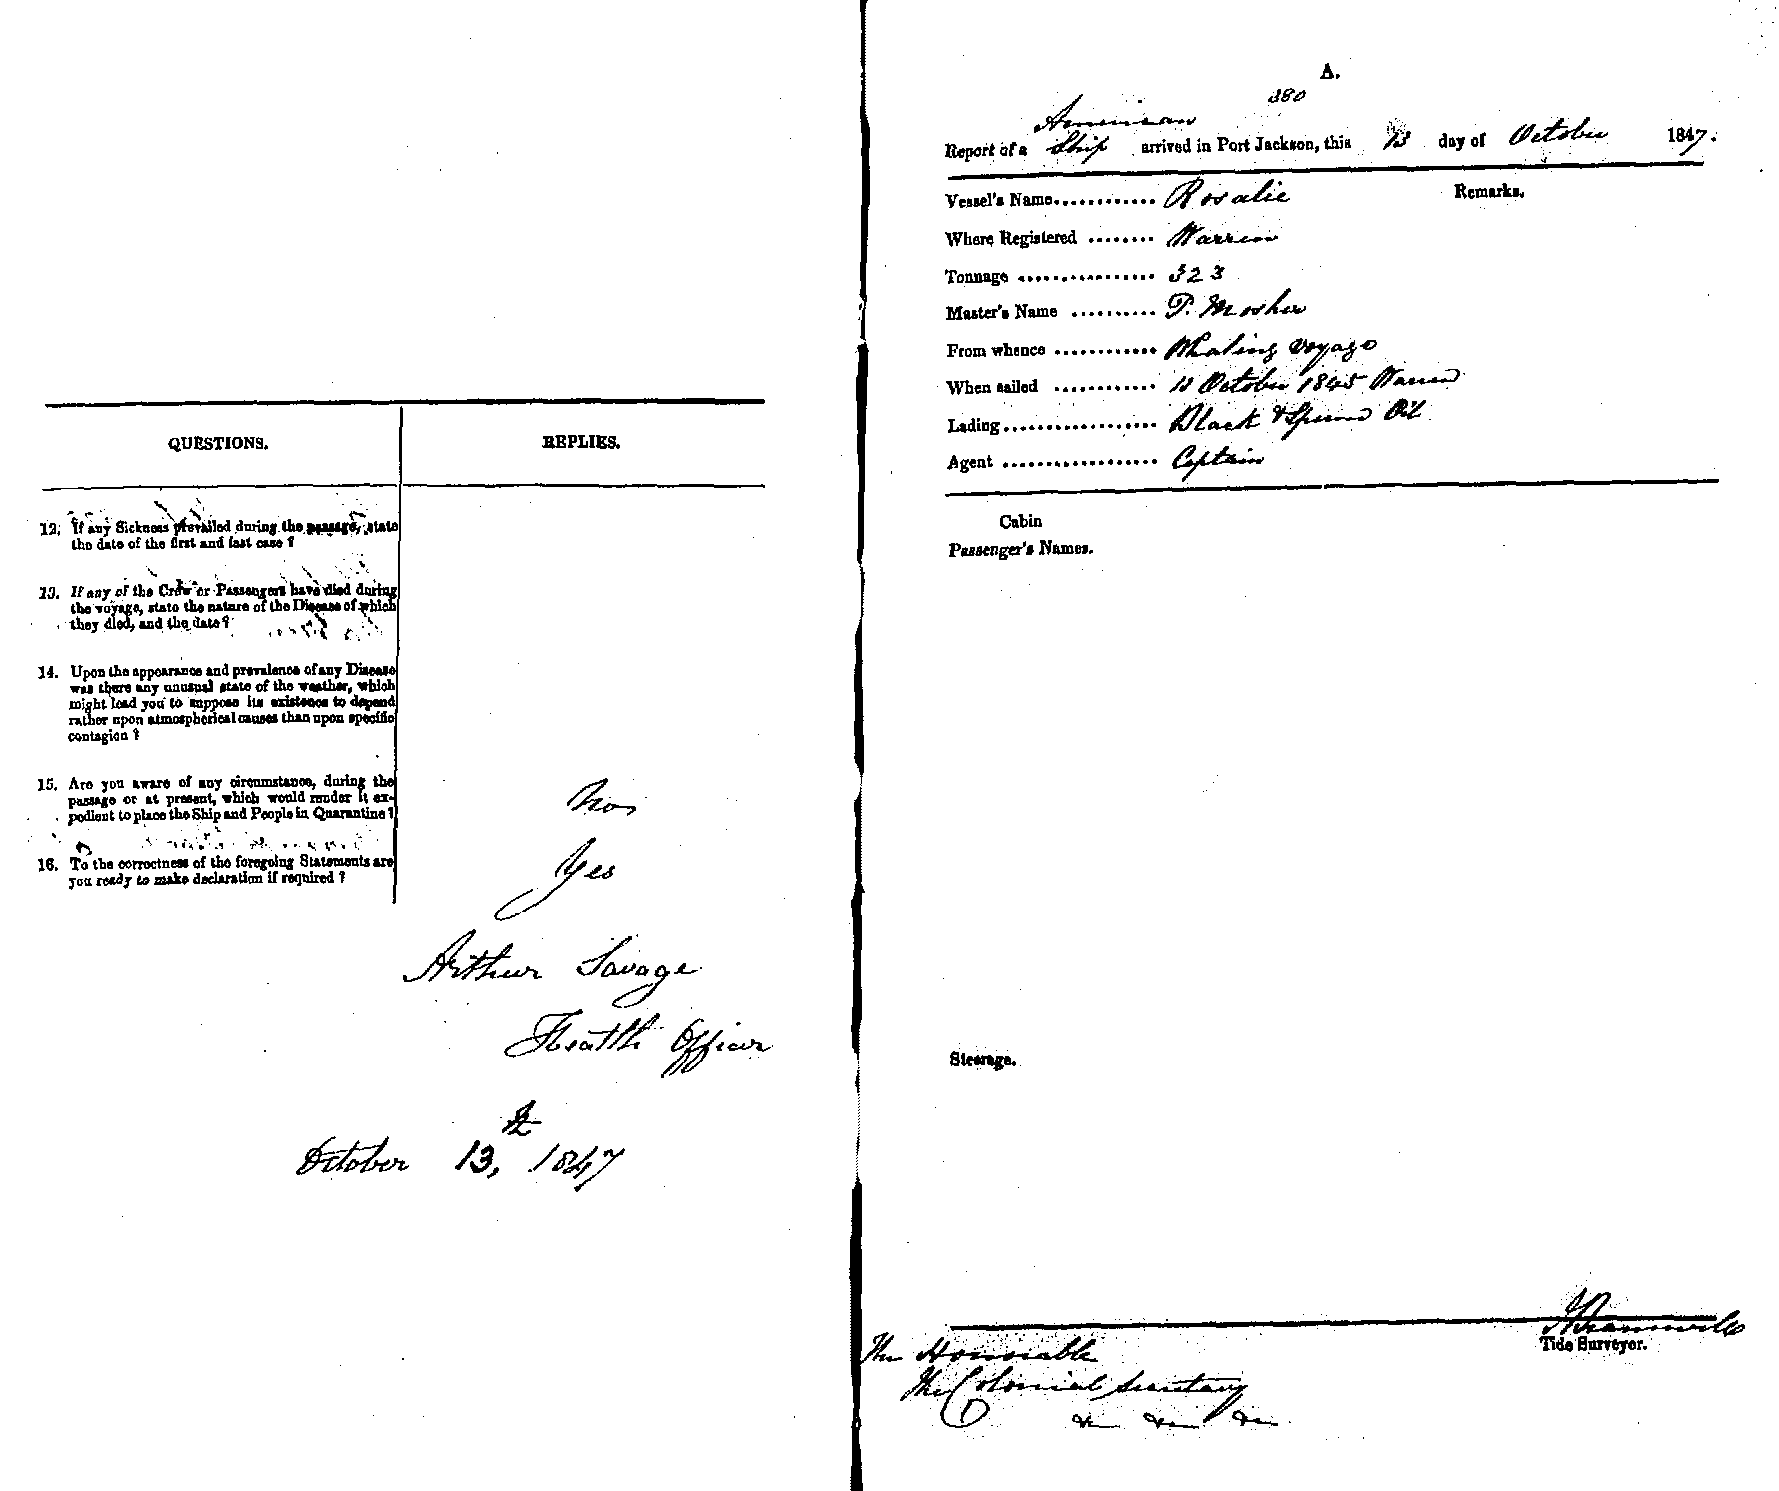 QUESTIONS.
REPLIES.
12. If any Sickness prevailed during the passage, state
the date of the first and last case ?
13. If any of the Crew or Passengers have died during
the voyage, state the nature of the Disease of which
they died, and the date ?
14. Upon the appearance and prevalence of any Disease
was there any unusual state of the weather, which
might lead you to suppose its existence to depend
rather upon atmospherical causes than upon specific
contagion ?
15. Are you aware of any circumstance, during the
passage or at present, which would render it ex-
pedient to place the Ship and People in Quarantine ?
No,
16. To the correctness of the foregoing Statements are
you ready to make declaration if required ?
Yes
Arthur Savage
Health Officer
October 13, 1847
A.
380
American
Report of a Ship arrived in Port Jackson, this 13 day of October 1847.
Vessel's Name............ Rosalie
Remarks.
Where Registered ........ Warren
Tonnage ................ 323
Master's Name .......... P. Mosher
From whence ............ Whaling voyage
When sailed ............ October 1845 Warren
Lading.................. Black & Sperm Oil
Agent .................. Captain
Cabin
Passenger's Names.
Steerage.
Tide Surveyor.
The Honorable
The Colonial Secretary